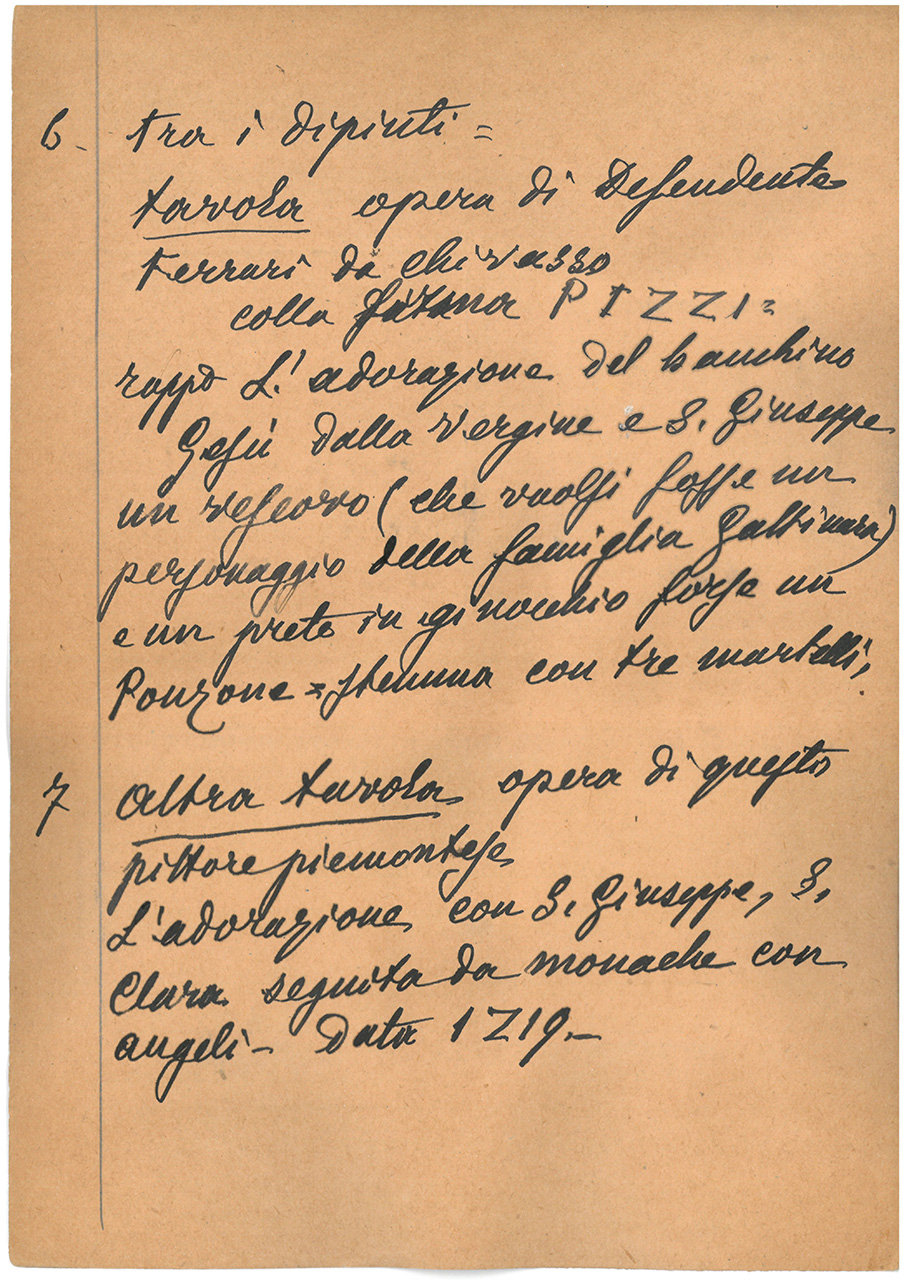 6- tra i dipinti =
tavola opera di Defendente
Ferrari da Chivasso
colla PIZZI =
rapp̄o L'adorazione del bambino
Gesù dalla Vergine e S. Giuseppe
un vescovo (che vuolsi fosse un
personaggio della famiglia Gattinara)
e un prete in ginocchio forse un
Ponzone = stemma con tre martelli,
7 altra tavola opera di questo
pittore piemontese
L'adorazione con S. Giuseppe, S.
Clara seguita da monache con
angeli - data 1Z19.-